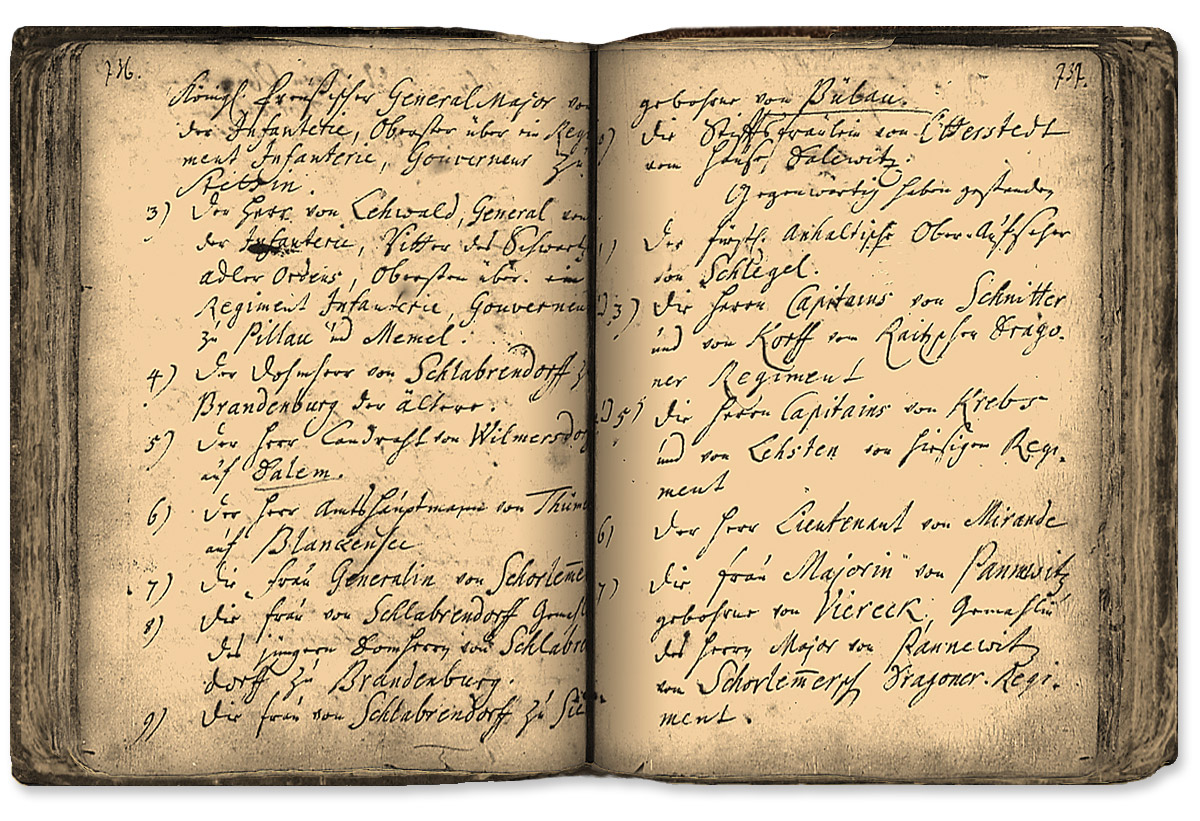 736.
Königl Preußischer General Major von
der Infanterie, Oberster über ein Reg
ment Infanterie, Gouverneur zu
Stettin.
3) Der Herr von Lehwald, General von
der Infanterie, Ritter des Schwartz
adler Ordens, Obersten über ein
Regiment Infanterie, Gouverneur
zu Pillau ud Memel.
4) Der Dohmherr von Schlabrendorff z
Brandenburg der ältere.
5) Der Herr Landraht von Wilmersdorf
auf Dalem.
6) Der Herr Amtshauptmann von Thüm
auf Blanckensee
7) Die Frau Generalin von Schorleme
8) Die Frau von Schlabrendorff Gemah
des jüngern Domherrn von Schlabre
dorff zu Brandenburg.
9) Die Frau von Schlabrendorff zu
737.
gebohrne von Bülau.
) Die Stiffts Fräulein von Otterstedt
vom Hause Dalewitz.
Gegenwertig haben gestanden
1) Der fürstl. Anhaltische Ober-Aufseher
von Schlegel.
3) Die Herrn Capitains von Schnitter
und von Korff vom Dragoner
ner Regiment
5) Die Herrn Capitains von Krebs
und von Lehsten von hiesigen Regi-
ment
6) Der Herr Lieutenant von Mirande
7) Die Frau Majorin von Pannewitz
gebohrne von Viereck, Gemahlin
des Herrn Major von Pannewitz
von Schorlem̅ersch Dragoner-Regi-
ment.